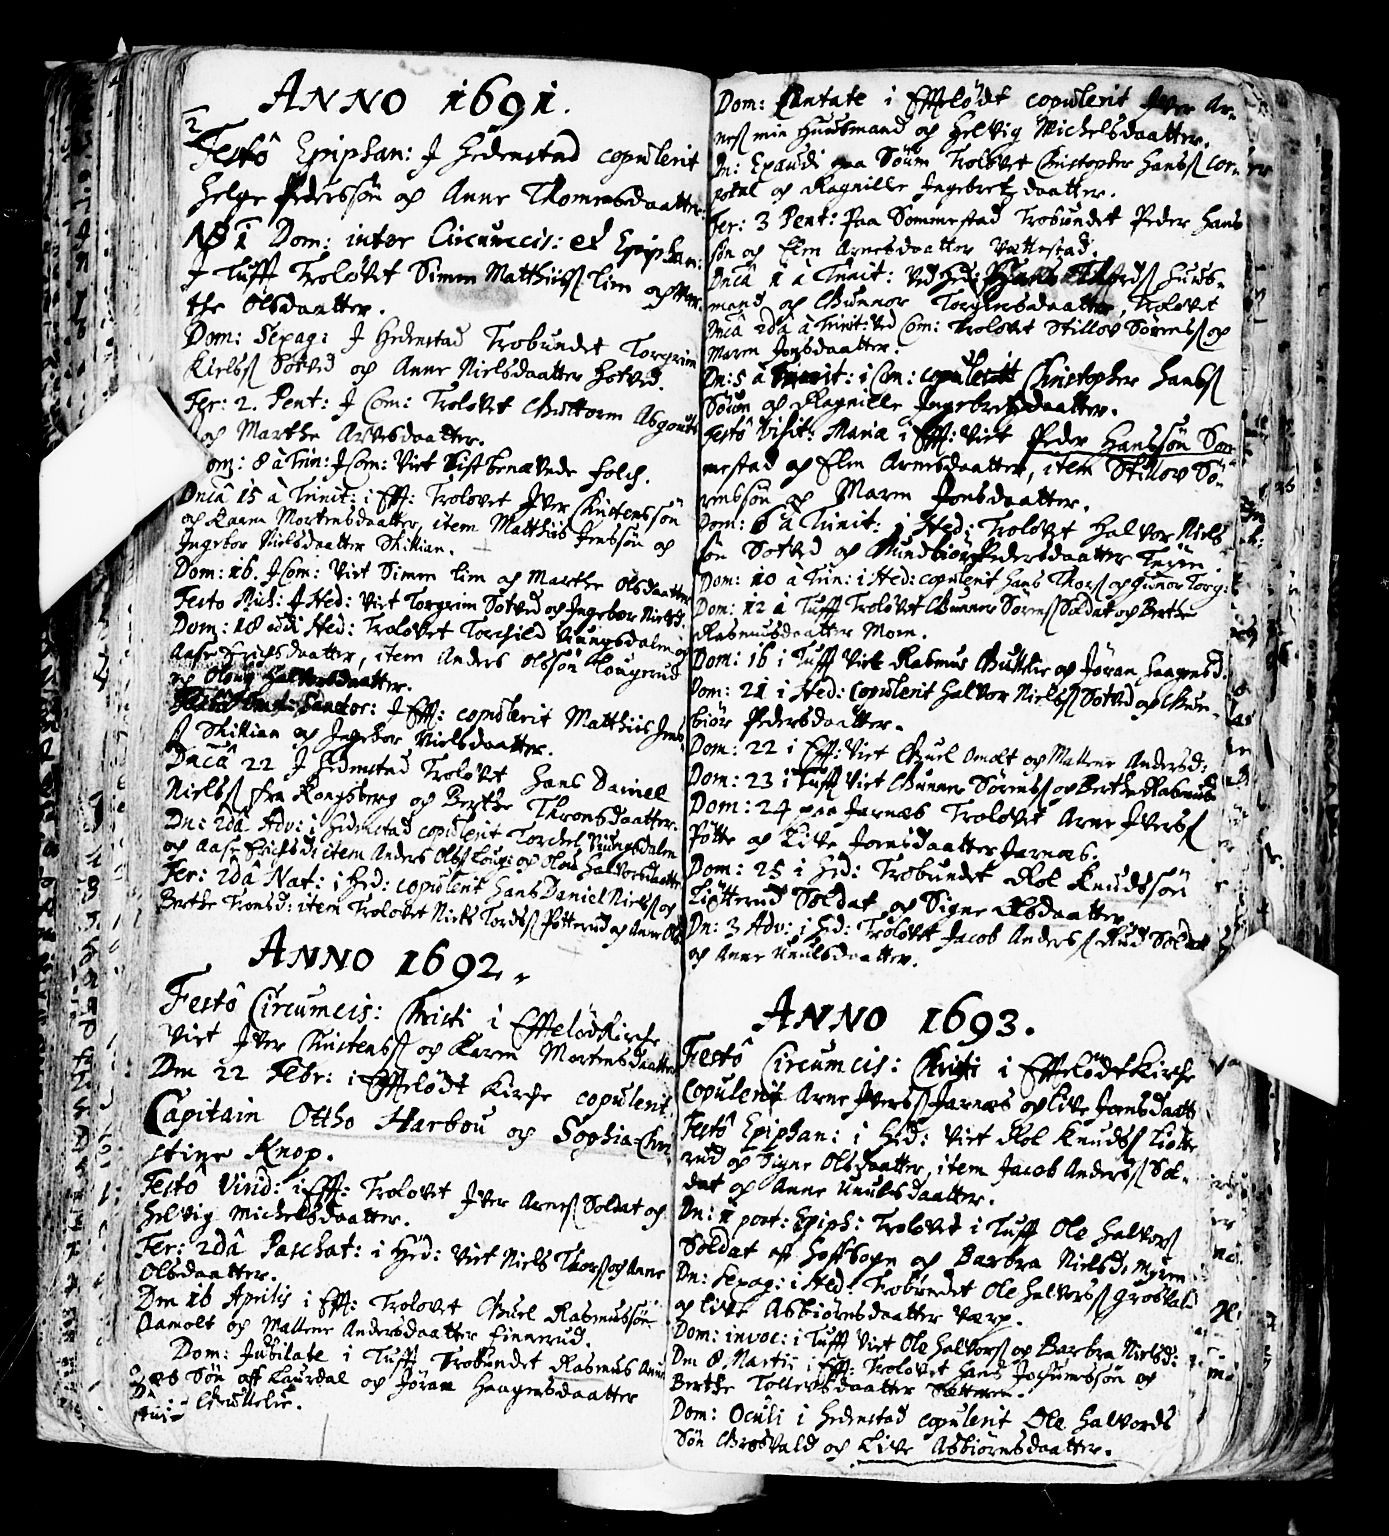 ANNO 1691.
Festô Epiphan: J Hedenstad copulerit
Helge Pederssøn og Anne Thomesdaatter.
NB 1 Dom: inter Circumcis: et Epiphan:
J Tufft Trolovet Simen Matthiisß Lien og Mar-
the Olsdaatter.
Dom: Sexag: J Hedenstad Trobundet Torgrim
Kielsß Sotvid og Anne Nielsdaatter Hotved.
Fer: 2. Pent: J Com: Trolovet Guttorm Asgouts
og Marthe Arnesdaatter.
Dom: 8 à Trin: J Com: Viet Sist benævnde folch.
Dnicâ 15 à Trinit: i Eff: Troloved Jver Christenssøn
og Karen Mortensdaatter, item Matthiis Jenssøn og
Ingebor Nielsdaatter Skillian.
Dom: 16. J Com: Viet Simen Lien og Marthe Olsdaatter
Festo Mich: J Hed: Viet Torgrim Sotved og Ingebor Nielsd.
Dom: 18 i Hed: Troloved Torchild Vungsdalen og
Aase Erichsdaatter, item Anders Olssøn Lougerud
og Oloug Halvorsdaatter.
Festo Omn: Sanctor: J Eff: copulerit Matthiis Jens
Skillian og Ingebor Nielsdaatter.
Dnicâ 22 J Hedenstad Troloved Hans Daniel
Nielsß fra Kongsberg og Berthe Thronsdaatter.
Dn: 2dâ Adv: i Hedenstad copulerit Torchel Vungsdalen
og Aase Erichsd: item Anders Olsß Loug: og Oloug Halvorsdaatter
Fer: 2dâ Nat: i Hed: copulerit Hans Daniel Nielsß og
Berthe Tronsd: item Troloved Niels Tordsß Pótterud og Anne Ols
ANNO 1692.
Festô Circumcis: Christi i Effteløds Kirche
viet Jver Christensß og Karen Mortensdaatter
Den 22 Febr: i Effteløds Kirche copulerit
Capitain Ottho Harbou og Sophia-Chri-
stine Knop.
Festô Virid: i Eff: Troloved Jver Arnesß Soldat og
Helvig Michelsdaatter.
Fer: 2dâ Paschat: i Hed: Viet Niels Thorsß og Anne
Olsdaatter.
Den 16 Aprilis i Eff: Troloved Gurl Rasmussøn
Aamolt og Mallene Andersdaatter Finnerud.
Dom: Jubilate i Tufft Trobundet Rasmus
Søn aff Laurdal og Jøran Haagensdaatter
Dom: Cantate i Effteløds copulerit Jver Ar-
nesß min Huusmand og Helvig Michelsdaatter.
Dn: Exaudi paa Søum Troloved Christopher Hansß Cor-
poral og Ragnille Ingebretzdaatter.
Fer: 3 Pent: paa Sommestad Trobundet Peder Hans
søn og Elen Arnesdaatter Vættestad.
Dnicâ 1 à Trinit: ved Hed: Huus-
mand og Gunnor Torgersdaatter, Troloved
Dnicâ 2dâ à Trinit: ved Com: Troloved Stillov Sørensß og
Maren Jonsdaatter.
Dn: 5 à Trinit: i Com: copulerit Christopher Hansß
Søum og Ragnille Ingebretzdaatter.
Festô Visit: Maria i Eff: Viet Peder Hanssøn Som
mestad og Elen Arnesdaatter, item Stillov Sø-
renssøn og Maren Jonsdaatter.
Dom: 6 à Trinit: i Hed: Troloved Halvor Niels
søn Sotved og Gundbiør Pedersdaatter
Dom: 10 à Trin: i Hed: copulerit Hans Thorsß og Gunor Torg:
Dom: 12 à Tufft Troloved Gunner Sørensß Soldat og Berthe
Rasmusdaatter Moen.
Dom: 16 i Tufft Viet Rasmus og Jøran Haagensd.
Dom: 21 i Hed: copulerit Halvor Nielsß Sotved og Gun-
biør Pedersdaatter.
Dom: 22 i Eff: Viet Gurl Omolt og Mallene Andersd:
Dom: 23 i Tufft Viet Gunner Sørensß og Berthe Rasmus
Dom: 24 paa Jarnæs Troloved Arne Jversß
Pótte og Live Jonsdaatter Jarnæs.
Dom: 25 i Hed: Trobundet Rol Knudssøn
Liotterud Soldat og Signe Olsdaatter
Dn: 3 Adv: i Hed: Troloved Jacob Andersß Rud Soldat
og Anne Knudsdaatter.
ANNO 1693.
Festô Circumcis: Christi i Effteløds Kirche
Copulerit Arne Jversß Jarnæs og Live Jonsdaatt
Festô Epiphan: i Hed: Viet Rol Knudsß Liotte
rud og Signe Olsdaatter, item Jacob Andersß Sol-
dat og Anne Knudsdaatter.
Dn: 1 post: Epiph: Troloved i Tufft Ole Halvorsß
Soldat aff Hoffsogn og Barbra Nielsd: Myren
Dn: Sexag: i Hed: Trobundet Ole Halvorsß Grosvald
og Live Asbiørnsdaatter Varp.
Dom: invoc: i Tufft Viet Ole Halvorsß og Barbra Nielsd:
Den 8 Martii i Eff: Troloved Hans Jochumssøn og
Berthe Tollevsdaatter Sættren.
Dom: Oculi i Hedenstad copulerit Ole Halvords
Søn Grosvald og Live Asbiørnsdaatter.